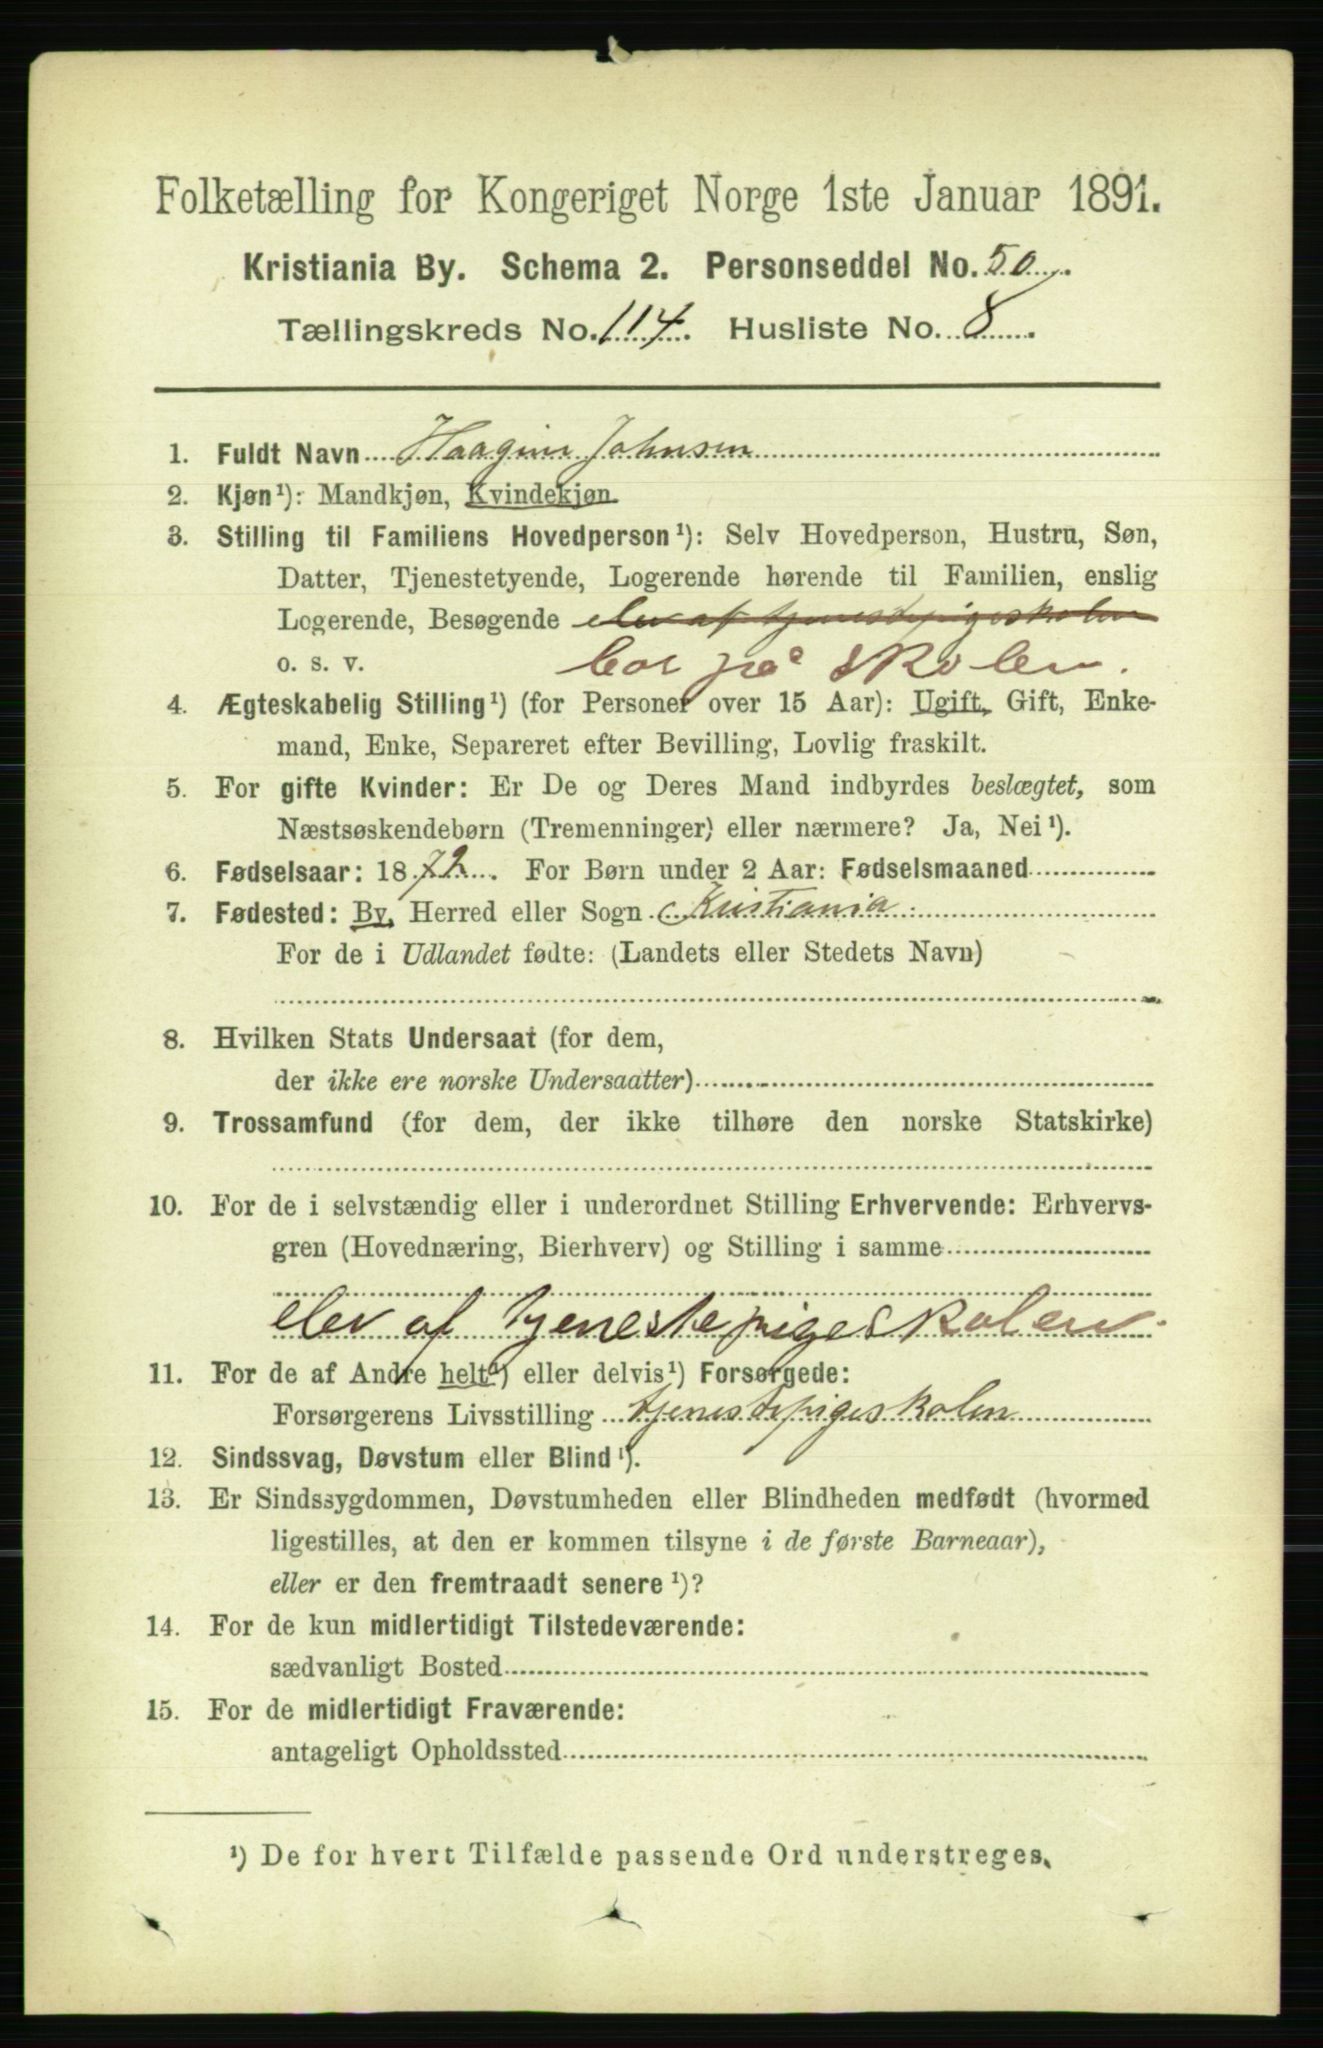 Folketælling for Kongeriget Norge 1ste Januar 1891.
Kristiania By. Schema 2. Personseddel No. 50.
Tællingskreds No. 114. Husliste No. 8.
1. Fuldt Navn Haagine Johnsen
2. Kjøn¹): Mandkjøn, Kvindekjøn.
3. Stilling til Familiens Hovedperson¹): Selv Hovedperson, Hustru, Søn,
Datter, Tjenestetyende, Logerende hørende til Familien, enslig
Logerende, Besøgende elev af tjenestepigeskolen
o. s. v. bor på skolen.
4. Ægteskabelig Stilling¹) (for Personer over 15 Aar): Ugift, Gift, Enke-
mand, Enke, Separeret efter Bevilling, Lovlig fraskilt.
5. For gifte Kvinder: Er De og Deres Mand indbyrdes beslægtet, som
Næstsøskendebørn (Tremenninger) eller nærmere? Ja, Nei¹).
6. Fødselsaar: 1872. For Børn under 2 Aar: Fødselsmaaned
7. Fødested: By, Herred eller Sogn Kristiania
For de i Udlandet fødte: (Landets eller Stedets Navn)
8. Hvilken Stats Undersaat (for dem,
der ikke ere norske Undersaatter)
9. Trossamfund (for dem, der ikke tilhøre den norske Statskirke)
10. For de i selvstændig eller i underordnet Stilling Erhvervende: Erhvervs-
gren (Hovednæring, Bierhverv) og Stilling i samme
elev af tjenestepigeskolen.
11. For de af Andre helt¹) eller delvis¹) Forsørgede:
Forsørgerens Livsstilling tjenestepigeskolen
12. Sindssvag, Døvstum eller Blind¹).
13. Er Sindssygdommen, Døvstumheden eller Blindheden medfødt (hvormed
ligestilles, at den er kommen tilsyne i de første Barneaar),
eller er den fremtraadt senere¹)?
14. For de kun midlertidigt Tilstedeværende:
sædvanligt Bosted
15. For de midlertidigt Fraværende:
antageligt Opholdssted
¹) De for hvert Tilfælde passende Ord understreges.